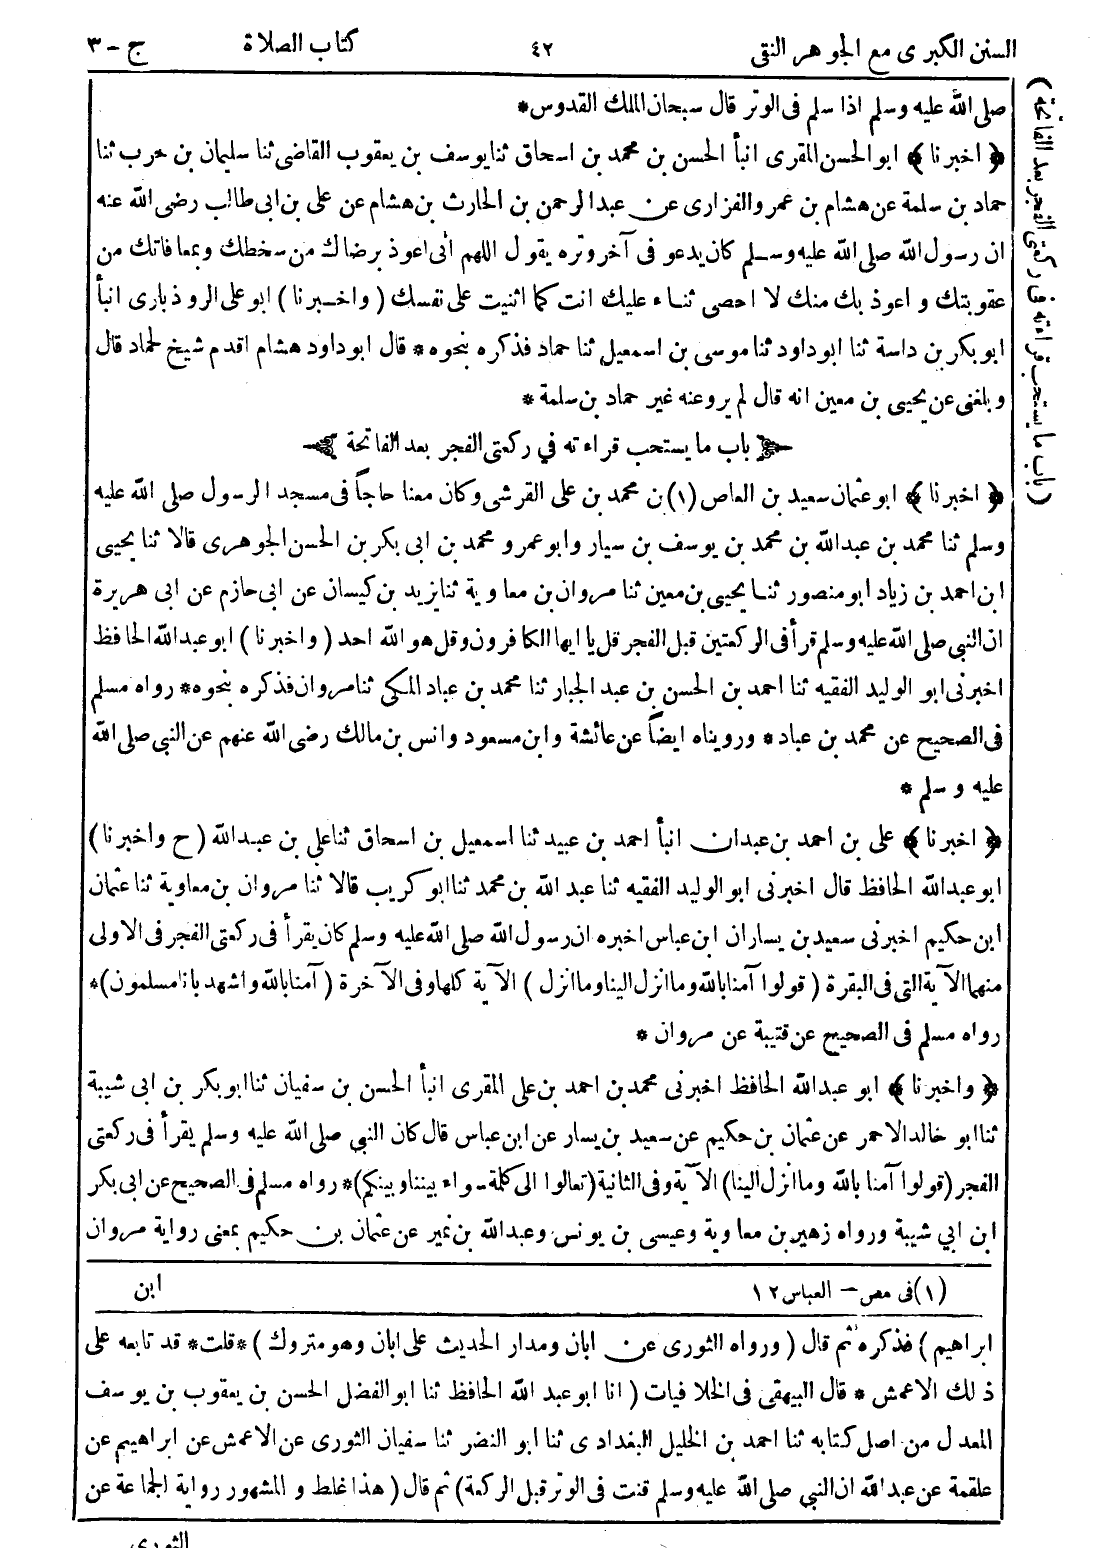 السنن الكبرى مع الجوهر النقى ٤٢ كتاب الصلاة ج - ٣
(باب ما يستحب قراءته فى ركعتى الفجر بعد الفاتحة)
صلى الله عليه وسلم اذا سلم فى الوتر قال سبحان الملك القدوس*
﴿ اخبرنا ﴾ ابو الحسن المقرى انبأ الحسن بن محمد بن اسحاق ثنا يوسف بن يعقوب القاضى ثنا سليمان بن حرب ثنا
حماد بن سلمة عن هشام بن عمرو الفزارى عن عبد الرحمن بن الحارث بن هشام عن على بن ابى طالب رضى الله عنه
ان رسول الله صلى الله عليه وسلم كان يدعو فى آخر وتره يقول اللهم انى اعوذ برضاك من سخطك وبمعافاتك من
عقوبتك و اعوذ بك منك لا احصى ثناء عليك انت كما اثنيت على نفسك ( واخبرنا ) ابو على الروذبارى انبأ
ابو بكر بن داسة ثنا ابو داود ثنا موسى بن اسمعيل ثنا حماد فذكره بنحوه* قال ابو داود هشام اقدم شيخ لحماد قال
و بلغنى عن يحيى بن معين انه قال لم يرو عنه غير حماد بن سلمة*
﴿ باب ما يستحب قراءته في ركعتى الفجر بعد الفاتحة ﴾
﴿ اخبرنا ﴾ ابو عثمان سعيد بن العاص (١) بن محمد بن على القرشى وكان معنا حاجاً فى مسجد الرسول صلى الله عليه
وسلم ثنا محمد بن عبدالله بن محمد بن يوسف بن سيار وابو عمرو محمد بن ابى بكر بن الحسن الجوهرى قالا ثنا يحيى
ابن احمد بن زياد ابو منصور ثنا يحيى بن معين ثنا مروان بن معاوية ثنا يزيد بن كيسان عن ابى حازم عن ابى هريرة
ان النبى صلى الله عليه وسلم قرأ فى الركعتين قبل الفجر قل يا ايها الكافرون وقل هو الله احد ( واخبرنا ) ابو عبدالله الحافظ
اخبرنى ابو الوليد الفقيه ثنا احمد بن الحسن بن عبد الجبار ثنا محمد بن عباد المكى ثنا مروان فذكره بنحوه* رواه مسلم
فى الصحيح عن محمد بن عباد* ورويناه ايضاً عن عائشة وابن مسعود وانس بن مالك رضى الله عنهم عن النبى صلى الله
عليه و سلم *
﴿ اخبرنا ﴾ على بن احمد بن عبدان انبأ احمد بن عبيد ثنا اسمعيل بن اسحاق ثنا على بن عبدالله ( ح واخبرنا )
ابو عبدالله الحافظ قال اخبرنى ابو الوليد الفقيه ثنا عبد الله بن محمد ثنا ابو كريب قالا ثنا مروان بن معاوية ثنا عثمان
ابن حكيم اخبرنى سعيد بن يسار ان ابن عباس اخبره ان رسول الله صلى الله عليه وسلم كان يقرأ فى ركعتى الفجر فى الاولى
منهما الآية التى فى البقرة ( قولوا آمنا بالله وما انزل الينا وما انزل ) الآية كلها وفى الآخرة ( آمنا بالله واشهد بانا مسلمون)*
رواه مسلم فى الصحيح عن قتيبة عن مروان *
﴿ واخبرنا ﴾ ابو عبدالله الحافظ اخبرنى محمد بن احمد بن على المقرى انبأ الحسن بن سفيان ثنا ابو بكر بن ابى شيبة
ثنا ابو خالد الاحمر عن عثمان بن حكيم عن سعيد بن يسار عن ابن عباس قال كان النبي صلى الله عليه وسلم يقرأ فى ركعتى
الفجر (قولوا آمنا بالله وما انزل الينا) الآية وفى الثانية (تعالوا الى كلمة سواء بيننا وبينكم)* رواه مسلم فى الصحيح عن ابى بكر
ابن ابي شيبة ورواه زهير بن معاوية وعيسى بن يونس وعبدالله بن نمير عن عثمان بن حكيم بمعنى رواية مروان
(١) فى مص - العباس ١٢ ابن
ابراهيم ) فذكره ثم قال ( ورواه الثورى عن ابان ومدار الحديث على ابان وهو متروك ) *قلت* قد تابعه على
ذلك الاعمش * قال البيهقى فى الخلافيات ( انا ابو عبد الله الحافظ ثنا ابو الفضل الحسن بن يعقوب بن يوسف
المعدل من اصل كتابه ثنا احمد بن الخليل البغدادى ثنا ابو النضر ثنا سفيان الثورى عن الاعمش عن ابراهيم عن
علقمة عن عبد الله ان النبي صلى الله عليه وسلم قنت فى الوتر قبل الركعة) ثم قال ( هذا غلط و المشهور رواية الجماعة عن
الثورى